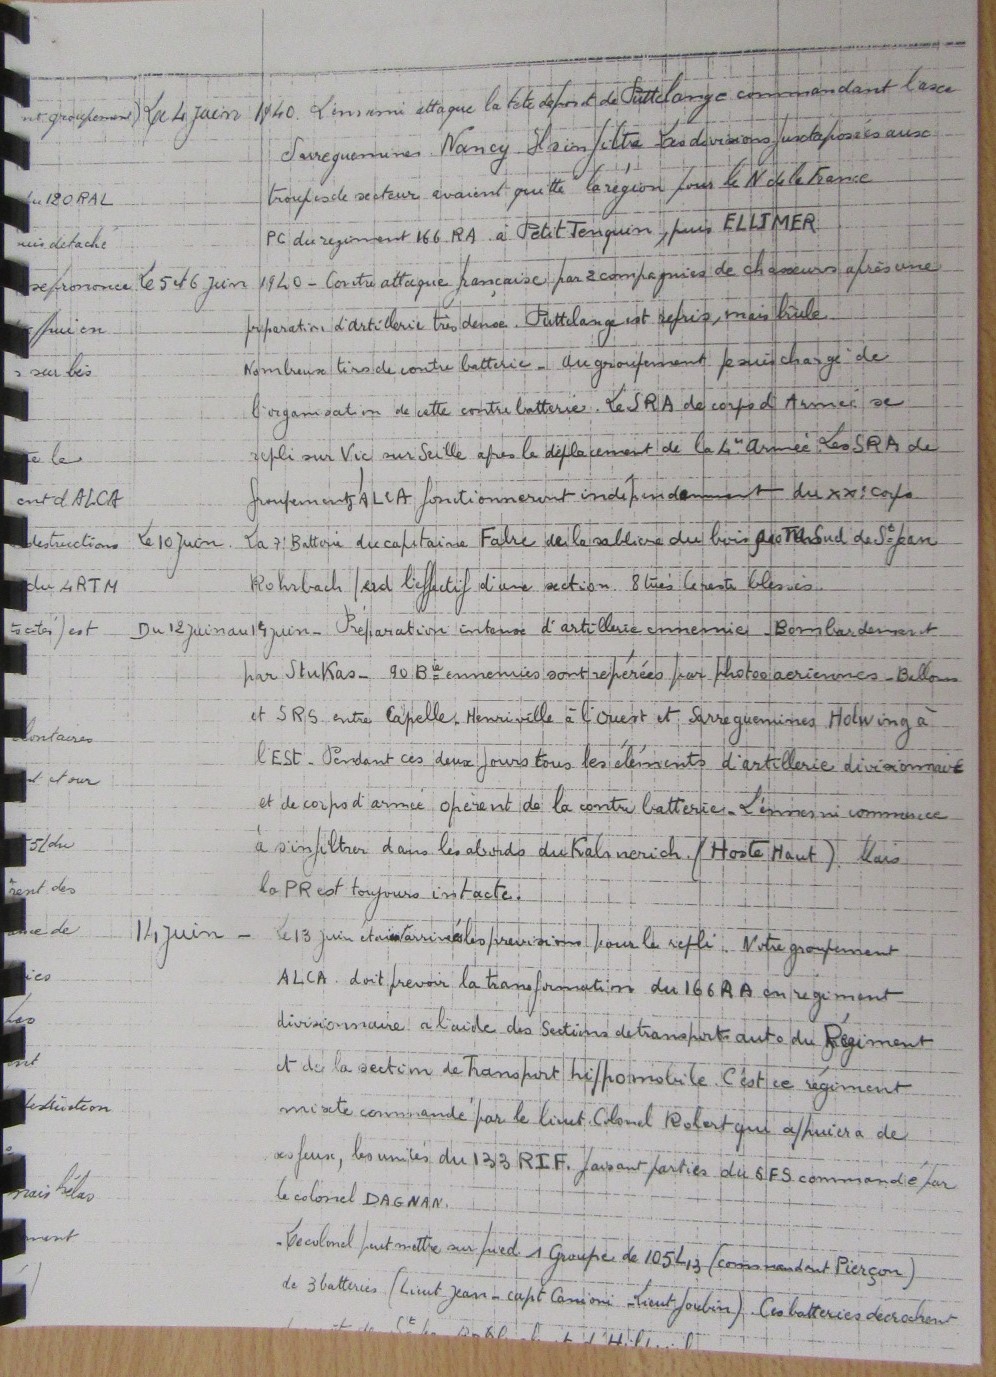 nt groupement) Le 4 Juin 1940. L'ennemi attaque la tête de pont de Puttelange commandant l'axe
Sarreguemines Nancy Il s'infiltre Les divisions juxtaposées aux
du 120 RAL troupes de secteur avaient quitté la région pour le N de la France
uis détaché PC du regiment 166 RA à Petit Tenquin, puis ELLIMER
se prononce Le 5 et 6 Juin 1940 - Contre attaque française par 2 compagnies de chasseurs après une
appui en préparation d'artillerie très dense. Puttelange est repris, mais brûle
s sur les Nombreux tirs de contre batterie - Au groupement je suis chargé de
l'organisation de cette contre batterie. Le SRA de corps d'Armée se
te le repli sur Vic sur Seille apres le déplacement de la 4e Armée Les SRA de
ent d'ALCA groupements ALCA fonctionneront indépendamment du XXe corps
destructions Le 10 Juin. La 7e Batterie du capitaine Fabre de la sablière du bois Sud de St Jean
du 4 RTM Rohrbach perd l'effectif d'une section. 8 tués le reste blessés.
est Du 12 Juin au 14 juin - Préparation intense d'artillerie ennemie - Bombardement
par Stukas - 90 Bie ennemies sont repérées par photos aeriennes - Ballons
et SRS entre Capelle - Henriville à l'Ouest et Sarreguemines Holwing à
olontaires
l'Est - Pendant ces deux jours tous les éléments d'artillerie divisionnaire
et sur
et de corps d'armée opèrent de la contre batterie - L'ennemi commence
51 du à s'infiltrer dans les abords du Kalmerich. (Hoste Haut) Mais
rent des la PR est toujours intacte.
ance de 14 juin - Le 13 juin étaient arrivées les prévisions pour le repli. Notre groupement
ies ALCA doit prevoir la transformation du 166 RA en regiment
Les divisionnaire à l'aide des Sections de transports auto du Régiment
ent et de la section de Transport hippomobile. C'est ce régiment
destruction mixte commandé par le lieut. Colonel Robert qui appuiera de
ses feux, les unités du 133 RIF. faisant parties du SFS commandé par
mais hélas le colonel DAGNAN.
ment - Le colonel peut mettre sur pied 1 Groupe de 105 L13 (commandant Pierçon)
de 3 batteries (Lieut Jean - capt Camioni - Lieut Joubin) Ces batteries décrochent